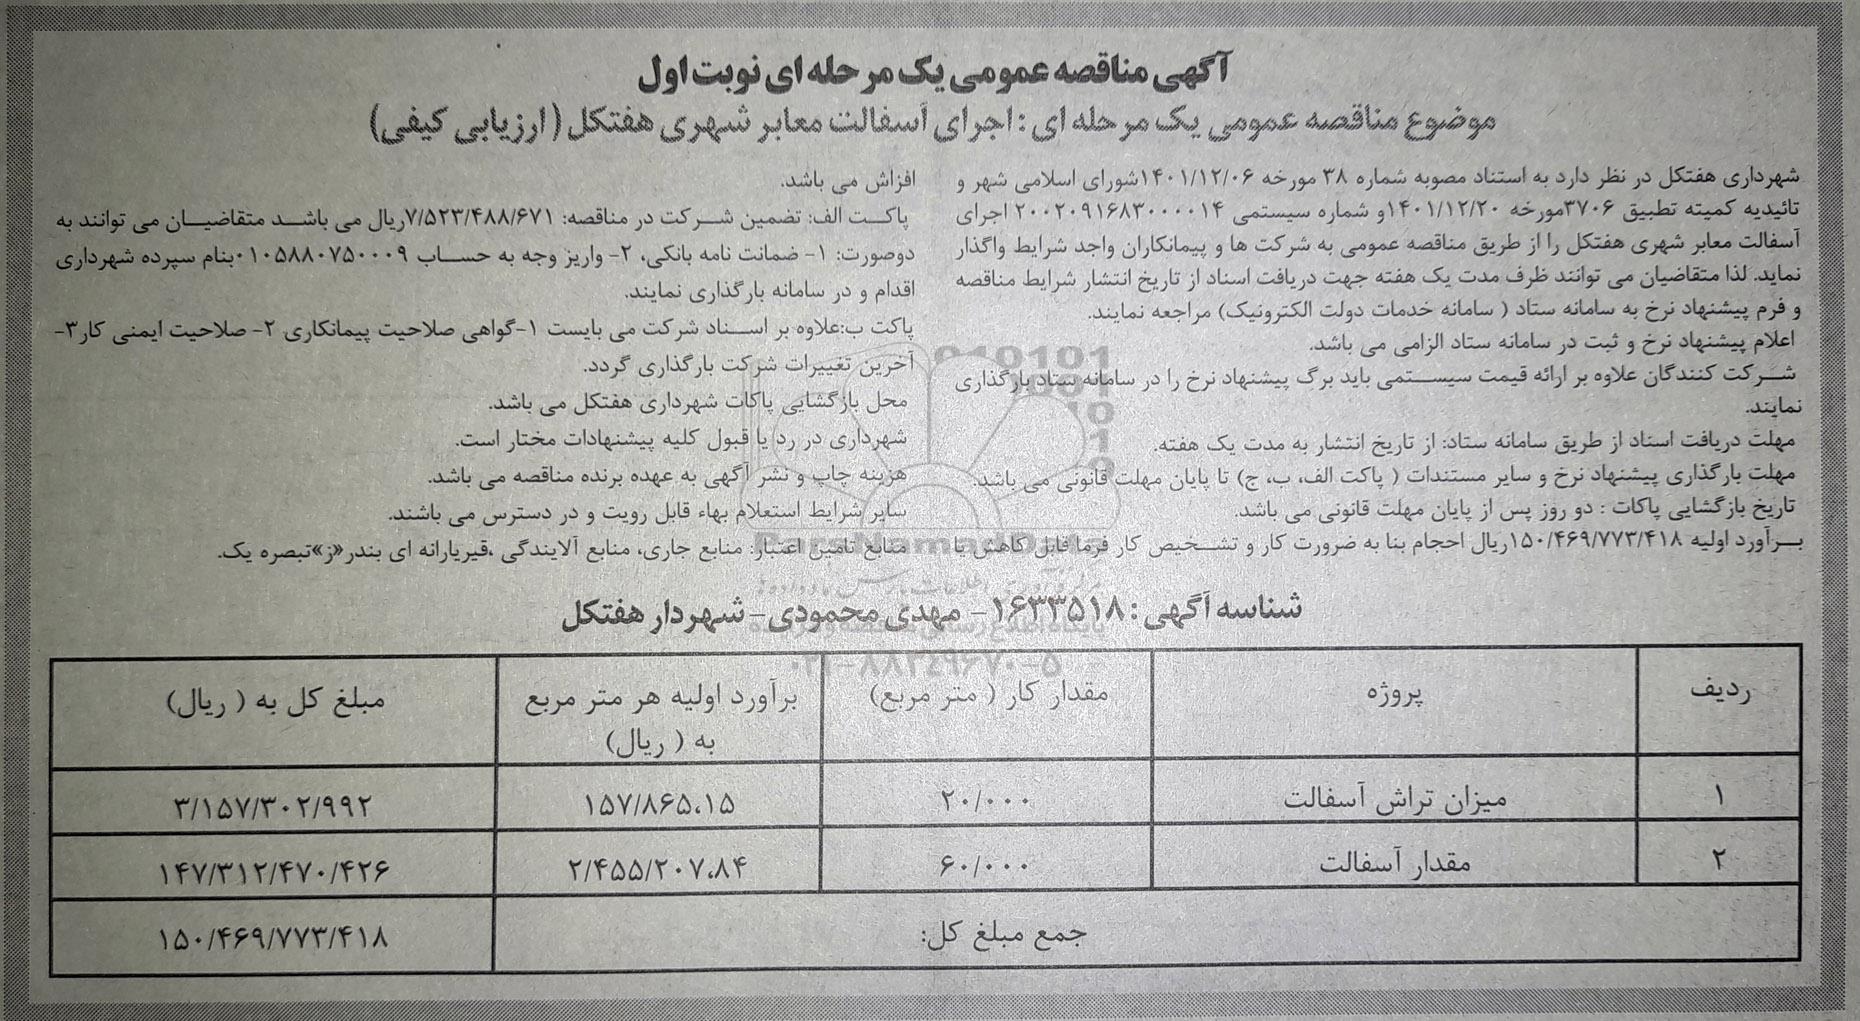 آگهی مناقصه عمومی یک مرحله ای نوبت اول
موضوع مناقصه عمومی یک مرحله ای : اجرای آسفالت معابر شهری هفتکل ( ارزیابی کیفی)
شهرداری هفتکل در نظر دارد به استناد مصوبه شماره ۳۸ مورخه ۱۴۰۱/۱۲/۰۶شورای اسلامی شهر و
تائیدیه کمیته تطبیق ۳۷۰۶مورخه ۱۴۰۱/۱۲/۲۰و شماره سیستمی ۲۰۰۲۰۹۱۶۸۳۰۰۰۰۱۴ اجرای
آسفالت معابر شهری هفتکل را از طریق مناقصه عمومی به شرکت ها و پیمانکاران واجد شرایط واگذار
نماید. لذا متقاضیان می توانند ظرف مدت یک هفته جهت دریافت اسناد از تاریخ انتشار شرایط مناقصه
و فرم پیشنهاد نرخ به سامانه ستاد ( سامانه خدمات دولت الکترونیک) مراجعه نمایند.
اعلام پیشنهاد نرخ و ثبت در سامانه ستاد الزامی می باشد.
شرکت کنندگان علاوه بر ارائه قیمت سیستمی باید برگ پیشنهاد نرخ را در سامانه ستاد بارگذاری
نمایند.
مهلت دریافت اسناد از طریق سامانه ستاد: از تاریخ انتشار به مدت یک هفته.
مهلت بارگذاری پیشنهاد نرخ و سایر مستندات ( پاکت الف، ب، ج) تا پایان مهلت قانونی می باشد.
تاریخ بازگشایی پاکات : دو روز پس از پایان مهلت قانونی می باشد.
برآورد اولیه ۱۵۰/۴۶۹/۷۷۳/۴۱۸ریال احجام بنا به ضرورت کار و تشخیص کار فرما قابل کاهش یا
افزاش می باشد.
پاکت الف: تضمین شرکت در مناقصه: ۷/۵۲۳/۴۸۸/۶۷۱ریال می باشد متقاضیان می توانند به
دوصورت: ۱- ضمانت نامه بانکی، ۲- واریز وجه به حساب ۰۱۰۵۸۸۰۷۵۰۰۰۹بنام سپرده شهرداری
اقدام و در سامانه بارگذاری نمایند.
پاکت ب:علاوه بر اسناد شرکت می بایست ۱-گواهی صلاحیت پیمانکاری ۲- صلاحیت ایمنی کار۳-
آخرین تغییرات شرکت بارگذاری گردد.
محل بازگشایی پاکات شهرداری هفتکل می باشد.
شهرداری در رد یا قبول کلیه پیشنهادات مختار است.
هزینه چاپ و نشر آگهی به عهده برنده مناقصه می باشد.
سایر شرایط استعلام بهاء قابل رویت و در دسترس می باشند.
منابع تامین اعتبار: منابع جاری، منابع آلایندگی ،قیریارانه ای بندر«ز»تبصره یک.
شناسه آگهی : ۱۶۳۳۵۱۸- مهدی محمودی- شهردار هفتکل
ParsNamadData
۰۲۱-۸۸۳۴۹۶۷۰-۵
ردیف پروژه مقدار کار ( متر مربع) برآورد اولیه هر متر مربع به ( ریال) مبلغ کل به ( ریال)
۱ میزان تراش آسفالت ۲۰/۰۰۰ ۱۵۷/۸۶۵،۱۵ ۳/۱۵۷/۳۰۲/۹۹۲
۲ مقدار آسفالت ۶۰/۰۰۰ ۲/۴۵۵/۲۰۷،۸۴ ۱۴۷/۳۱۲/۴۷۰/۴۲۶
جمع مبلغ کل: ۱۵۰/۴۶۹/۷۷۳/۴۱۸